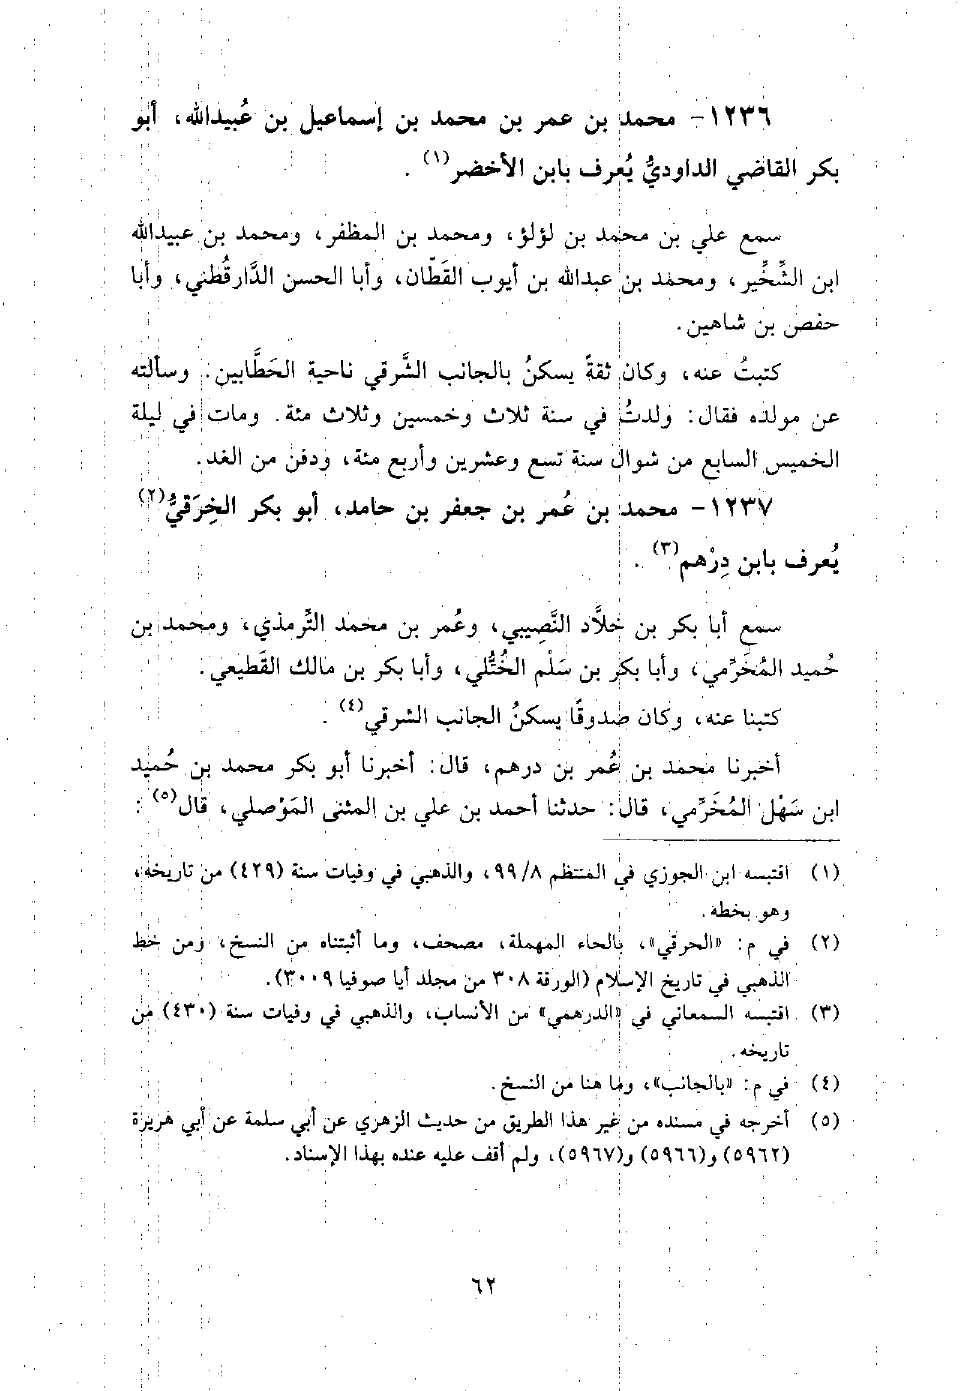 ١٢٣٦- محمد بن عمر بن محمد بن إسماعيل بن عُبيدالله، أبو
بكر القاضي الداوديُّ يُعرف بابن الأخضر(١) .
سمع علي بن محمد بن لؤلؤ، ومحمد بن المظفر، ومحمد بن عبيدالله
ابن الشِّخِّير، ومحمد بن عبدالله بن أيوب القَطّان، وأبا الحسن الدَّارقُطني، وأبا
حفص بن شاهين.
كتبتُ عنه، وكان ثقةً يسكنُ بالجانب الشَّرقي ناحية الحَطَّابين. وسألته
عن مولده فقال: ولدتُ في سنة ثلاث وخمسين وثلاث مئة. ومات في ليلة
الخميس السابع من شوال سنة تسع وعشرين وأربع مئة، ودفن من الغد.
١٢٣٧- محمد بن عُمر بن جعفر بن حامد، أبو بكر الخِرَقيُّ(٢)
يُعرف بابن دِرْهم(٣) .
سمع أبا بكر بن خلَّاد النَّصِيبي، وعُمر بن محمد التِّرمذي، ومحمد بن
حُميد المُخَرِّمي، وأبا بكر بن سَلْم الخُتُّلي، وأبا بكر بن مالك القَطيعي.
كتبنا عنه، وكان صدوقًا يسكنُ الجانب الشرقي(٤) .
أخبرنا محمد بن عُمر بن درهم، قال: أخبرنا أبو بكر محمد بن حُميد
ابن سَهْل المُخَرِّمي، قال: حدثنا أحمد بن علي بن المثنى المَوْصلي، قال(٥) :
(١) اقتبسه ابن الجوزي في المنتظم ٩٩/٨، والذهبي في وفيات سنة (٤٢٩) من تاريخه،
وهو بخطه.
(٢) في م: «الحرقي»، بالحاء المهملة، مصحف، وما أثبتناه من النسخ، ومن خط
الذهبي في تاريخ الإسلام (الورقة ٣٠٨ من مجلد أيا صوفيا ٣٠٠٩).
(٣) اقتبسه السمعاني في «الدرهمي» من الأنساب، والذهبي في وفيات سنة (٤٣٠) من
تاريخه.
(٤) في م: «بالجانب»، وما هنا من النسخ.
(٥) أخرجه في مسنده من غير هذا الطريق من حديث الزهري عن أبي سلمة عن أبي هريرة
(٥٩٦٢) و(٥٩٦٦) و(٥٩٦٧)، ولم أقف عليه عنده بهذا الإسناد.
٦٢